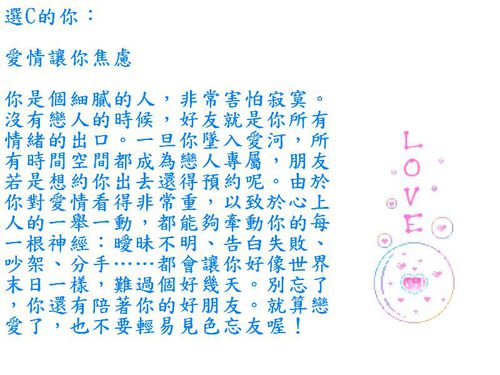 選C的你：
愛情讓你焦慮
你是個細膩的人，非常害怕寂寞。
沒有戀人的時候，好友就是你所有
情緒的出口。一旦你墜入愛河，所
有時間空間都成為戀人專屬，朋友
若是想約你出去還得預約呢。由於
你對愛情看得非常重，以致於心上
人的一舉一動，都能夠牽動你的每
一根神經：曖昧不明、告白失敗、
吵架、分手……都會讓你好像世界
末日一樣，難過個好幾天。別忘了
，你還有陪著你的好朋友。就算戀
愛了，也不要輕易見色忘友喔！
LOVE